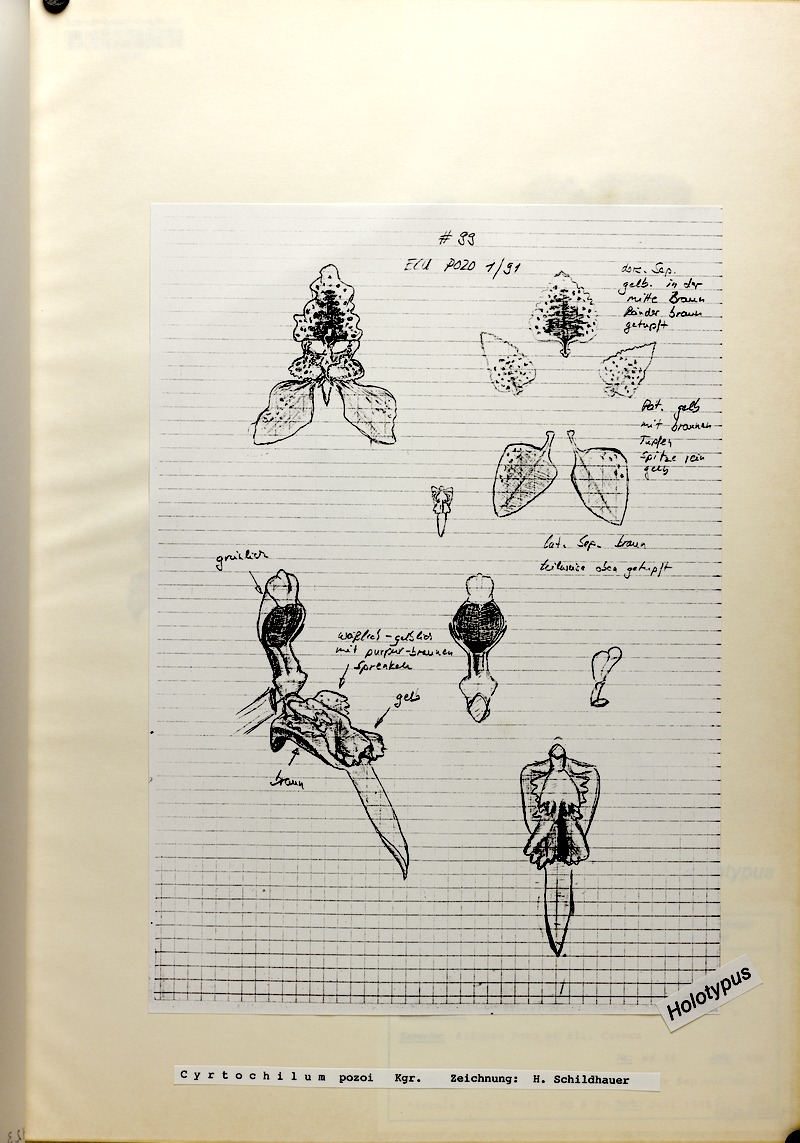 # 99
ECU POZO 1/91
dors. Sep.
gelb. in der
mitte Braun
Ränder braun
getupft
Pet. gelb
mit braunen
Tupfen
Spitze rein
gelb
lat. Sep. braun
teilweise oben getupft
grünlich
weißlich-gelblich
mit purpur-braunen
Sprenkeln
gelb
braun
Holotypus
Cyrtochilum pozoi Kgr. Zeichnung: H. Schildhauer